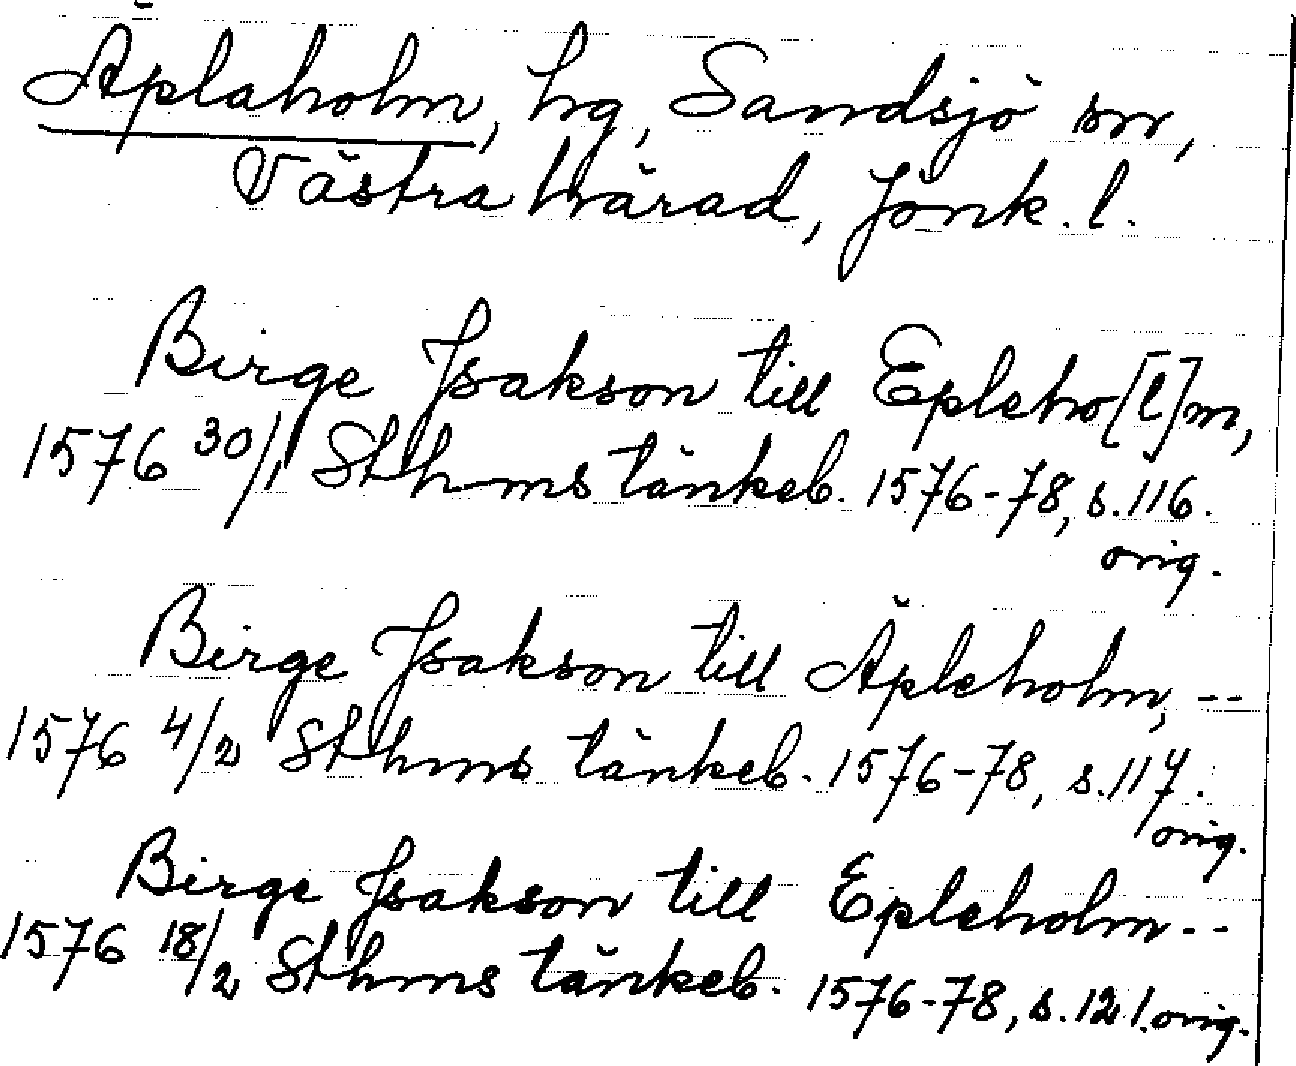 Äplaholm, hg, Sandsjö sn,
Västra härad, Jönk. l.
Birge Jsakson till Epleho[l]m,
1576 30/1 Sthms tänkeb. 1576-78, s. 116.
orig.
Birge Jsakson till Äpleholm, --
1576 4/2 Sthms tänkeb. 1576-78, s. 117.
orig.
Birge Jsakson till Epleholm --
1576 18/2 Sthms tänkeb. 1576-78, s. 121. orig.